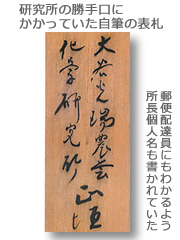 研究所の勝手口に
かかっていた自筆の表札
郵便配達員にもわかるよう
所長個人名も書かれていた
大谷光瑞農芸
化学研究所